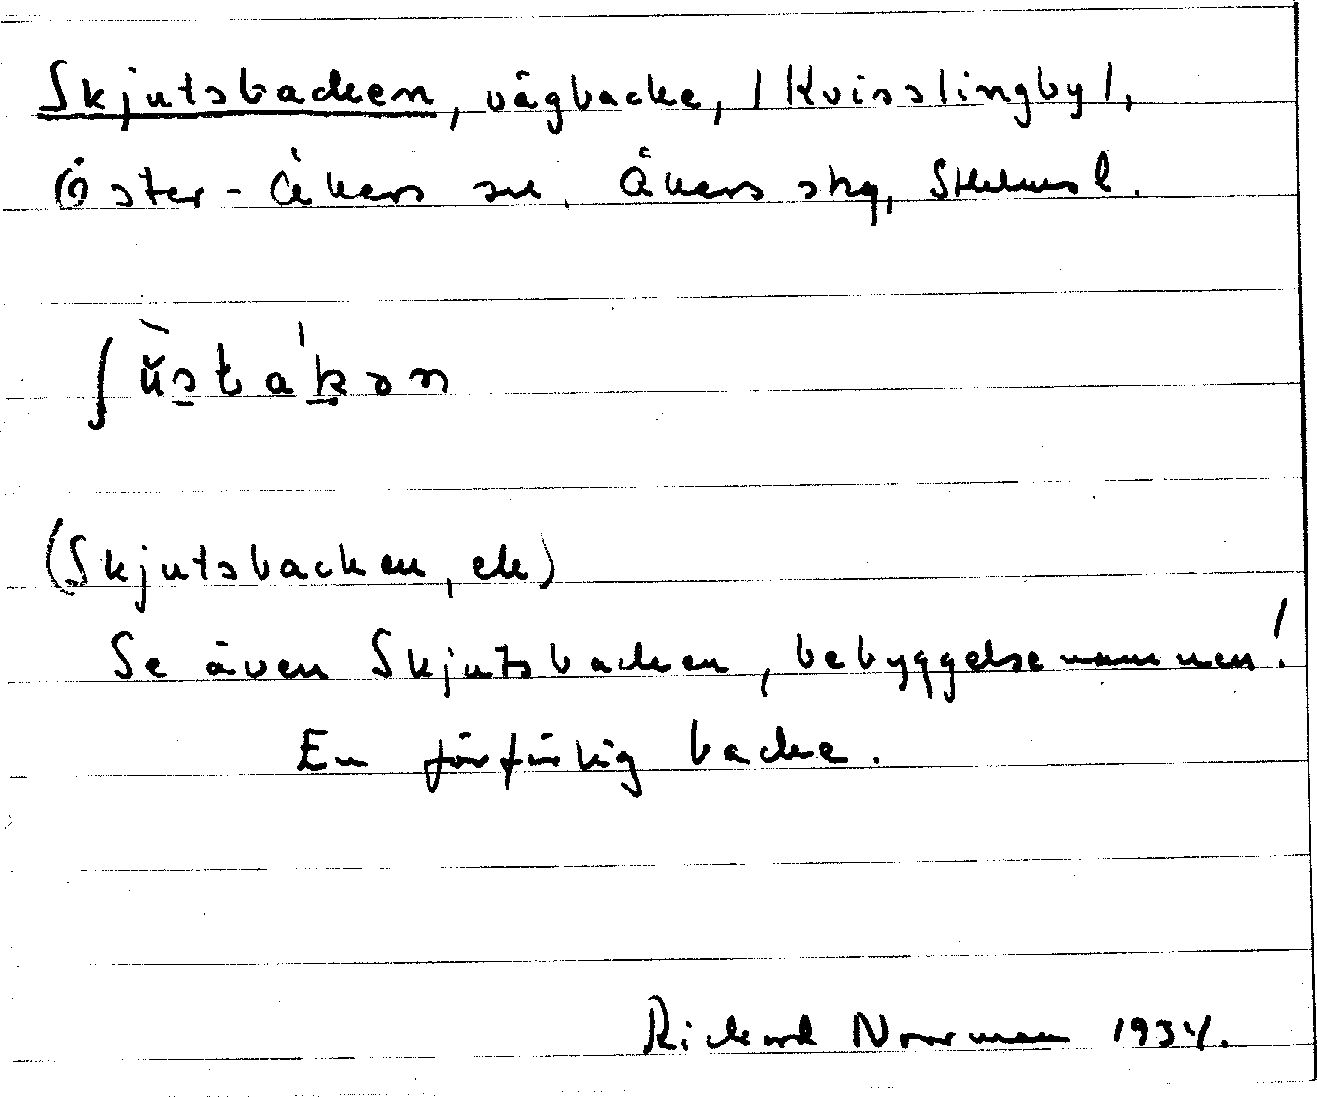 Skjutsbacken, vägbacke, /Kvisslingby/,
Öster-Åkers sn, Åkers skg, Sthlms l.
(Skjutsbacken, ek)
Se även Skjutsbacken, bebyggelsenamnen!
En förfärlig backe.
Rickard Norrman 1934.